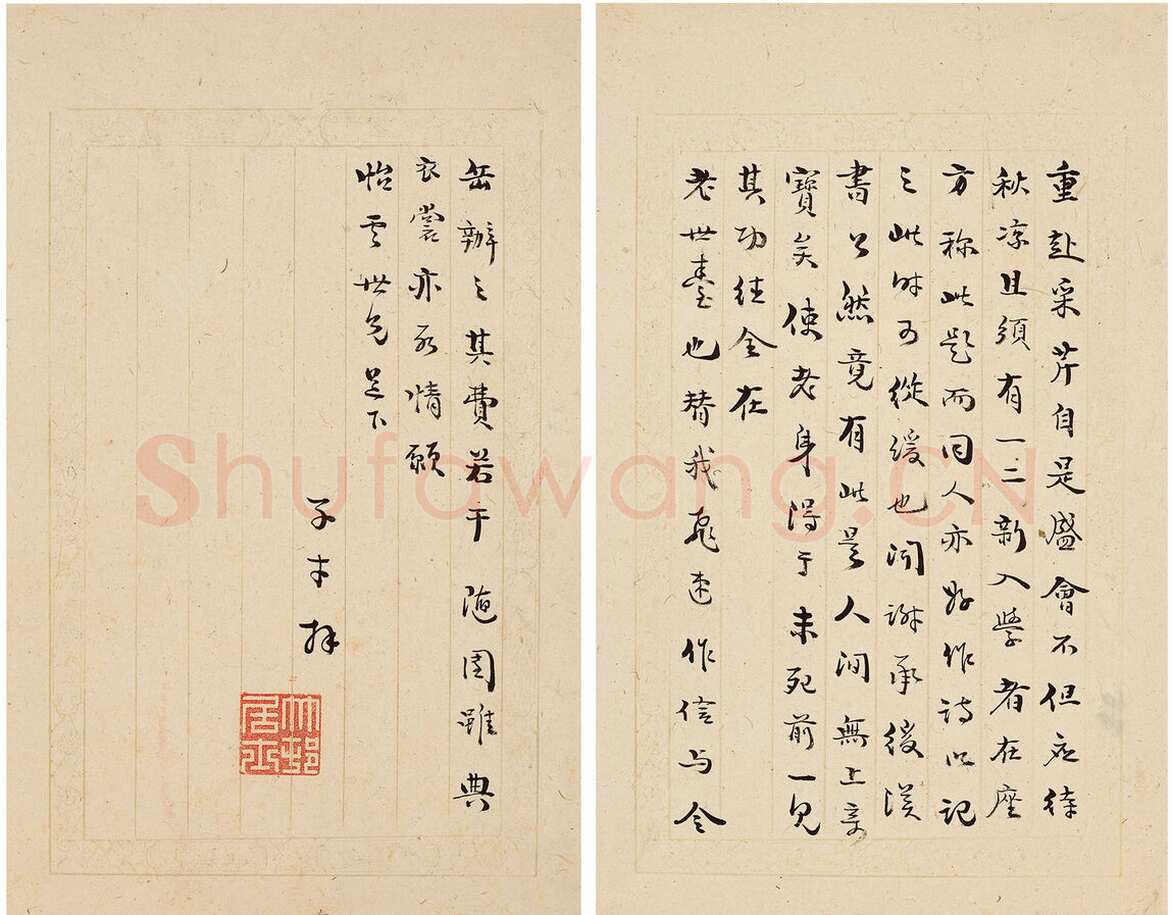 重赴采芹自是盛會不但應待
秋涼且須有一二新入學者在座
方称此題而同人亦好作詩以記
之此时可從緩也聞謝承後漢
書公然竟有此是人间無上竒
寶矣使老身得于未死前一見
其功德全在
老世臺也替我飛速作信与令
岳辦之其費若干随園雖典
衣裳亦所情願
怡雲世兄足下
子才拜
Shufawang.CN